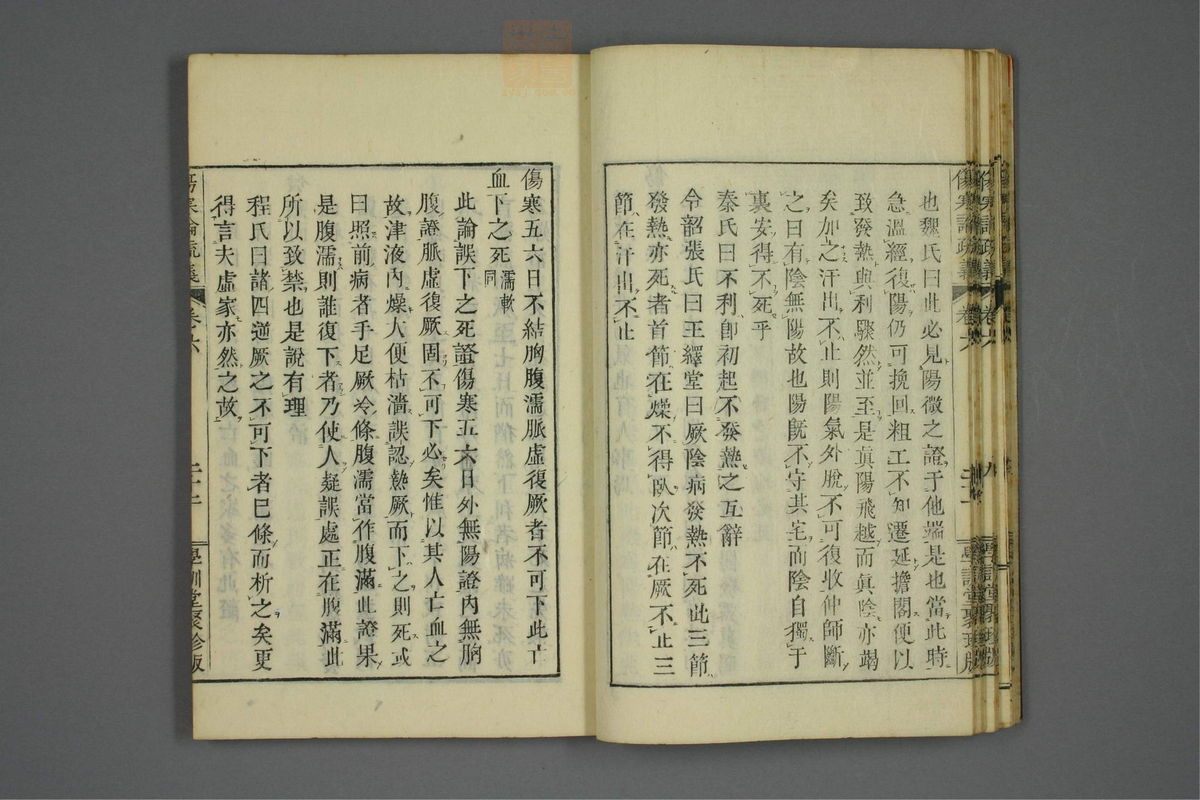 也魏氏曰此必見陽微之證于他端是也當此時
急溫經復陽仍可挽回粗工不知遷延擔閣便以
致發熱與利驟然並至是眞陽飛越而眞陰亦竭
矣加之汗出不止則陽氣外脫不可復收仲師斷
之曰有陰無陽故也陽旣不守其宅而陰自獨于
裏安得不死乎
秦氏曰不利卽初起不發熱之互辭
令韶張氏曰王繹堂曰厥陰病發熱不死此三節
發熱亦死者首節在燥不得臥次節在厥不止三
節在汗出不止
傷寒五六日不結胸腹濡脈虛復厥者不可下此亡
血下之死濡輭同
此論誤下之死證傷寒五六日外無陽證內無胸
腹證脈虛復厥固不可下必矣惟以其人亡血之
故津液內燥大便枯濇誤認熱厥而下之則死或
曰照前病者手足厥冷條腹濡當作腹滿此證果
是腹濡則誰復下者乃使人疑誤處正在腹滿此
所以致禁也是說有理
程氏曰諸四逆厥之不可下者巳條而析之矣更
得言夫虛家亦然之故
傷寒論疏義
卷六
二十二
學訓堂聚珍版